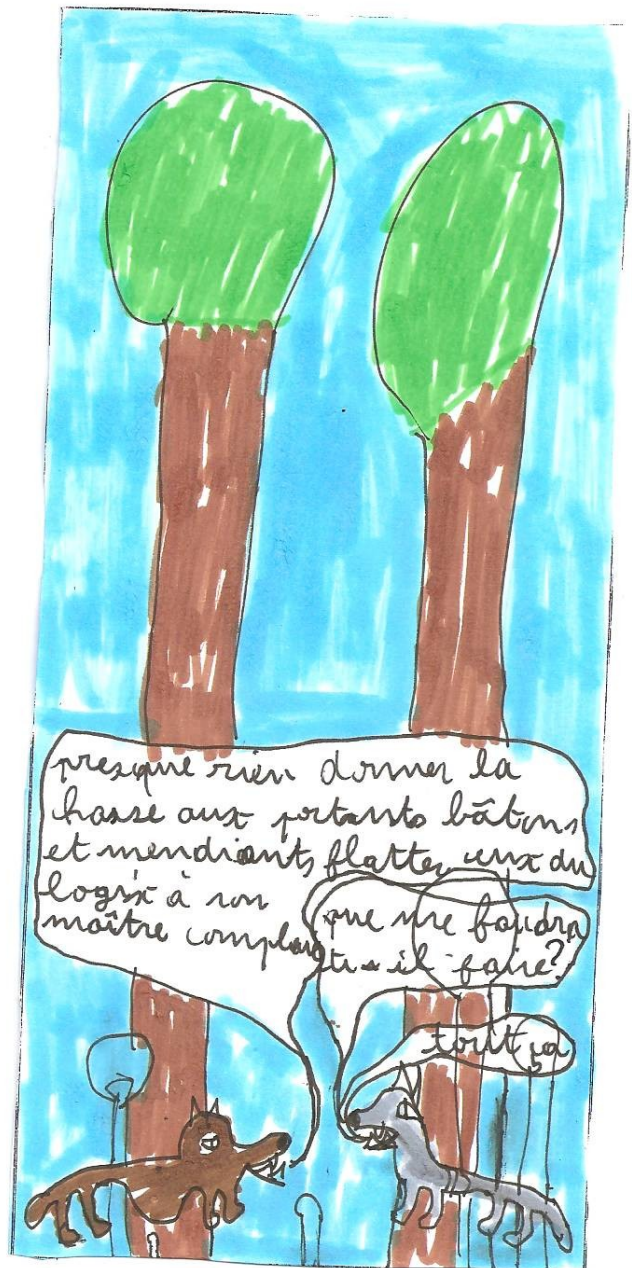 presque rien donner la
hasse aux portants bâtons
et mendiants flatter ceux du
logix à son
maître complaire
que me faudra
t-il faire?
tout ça